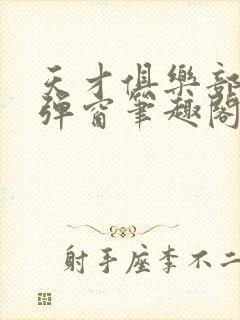 天才俱樂部
彈窗筆趣閣
射手座李不二